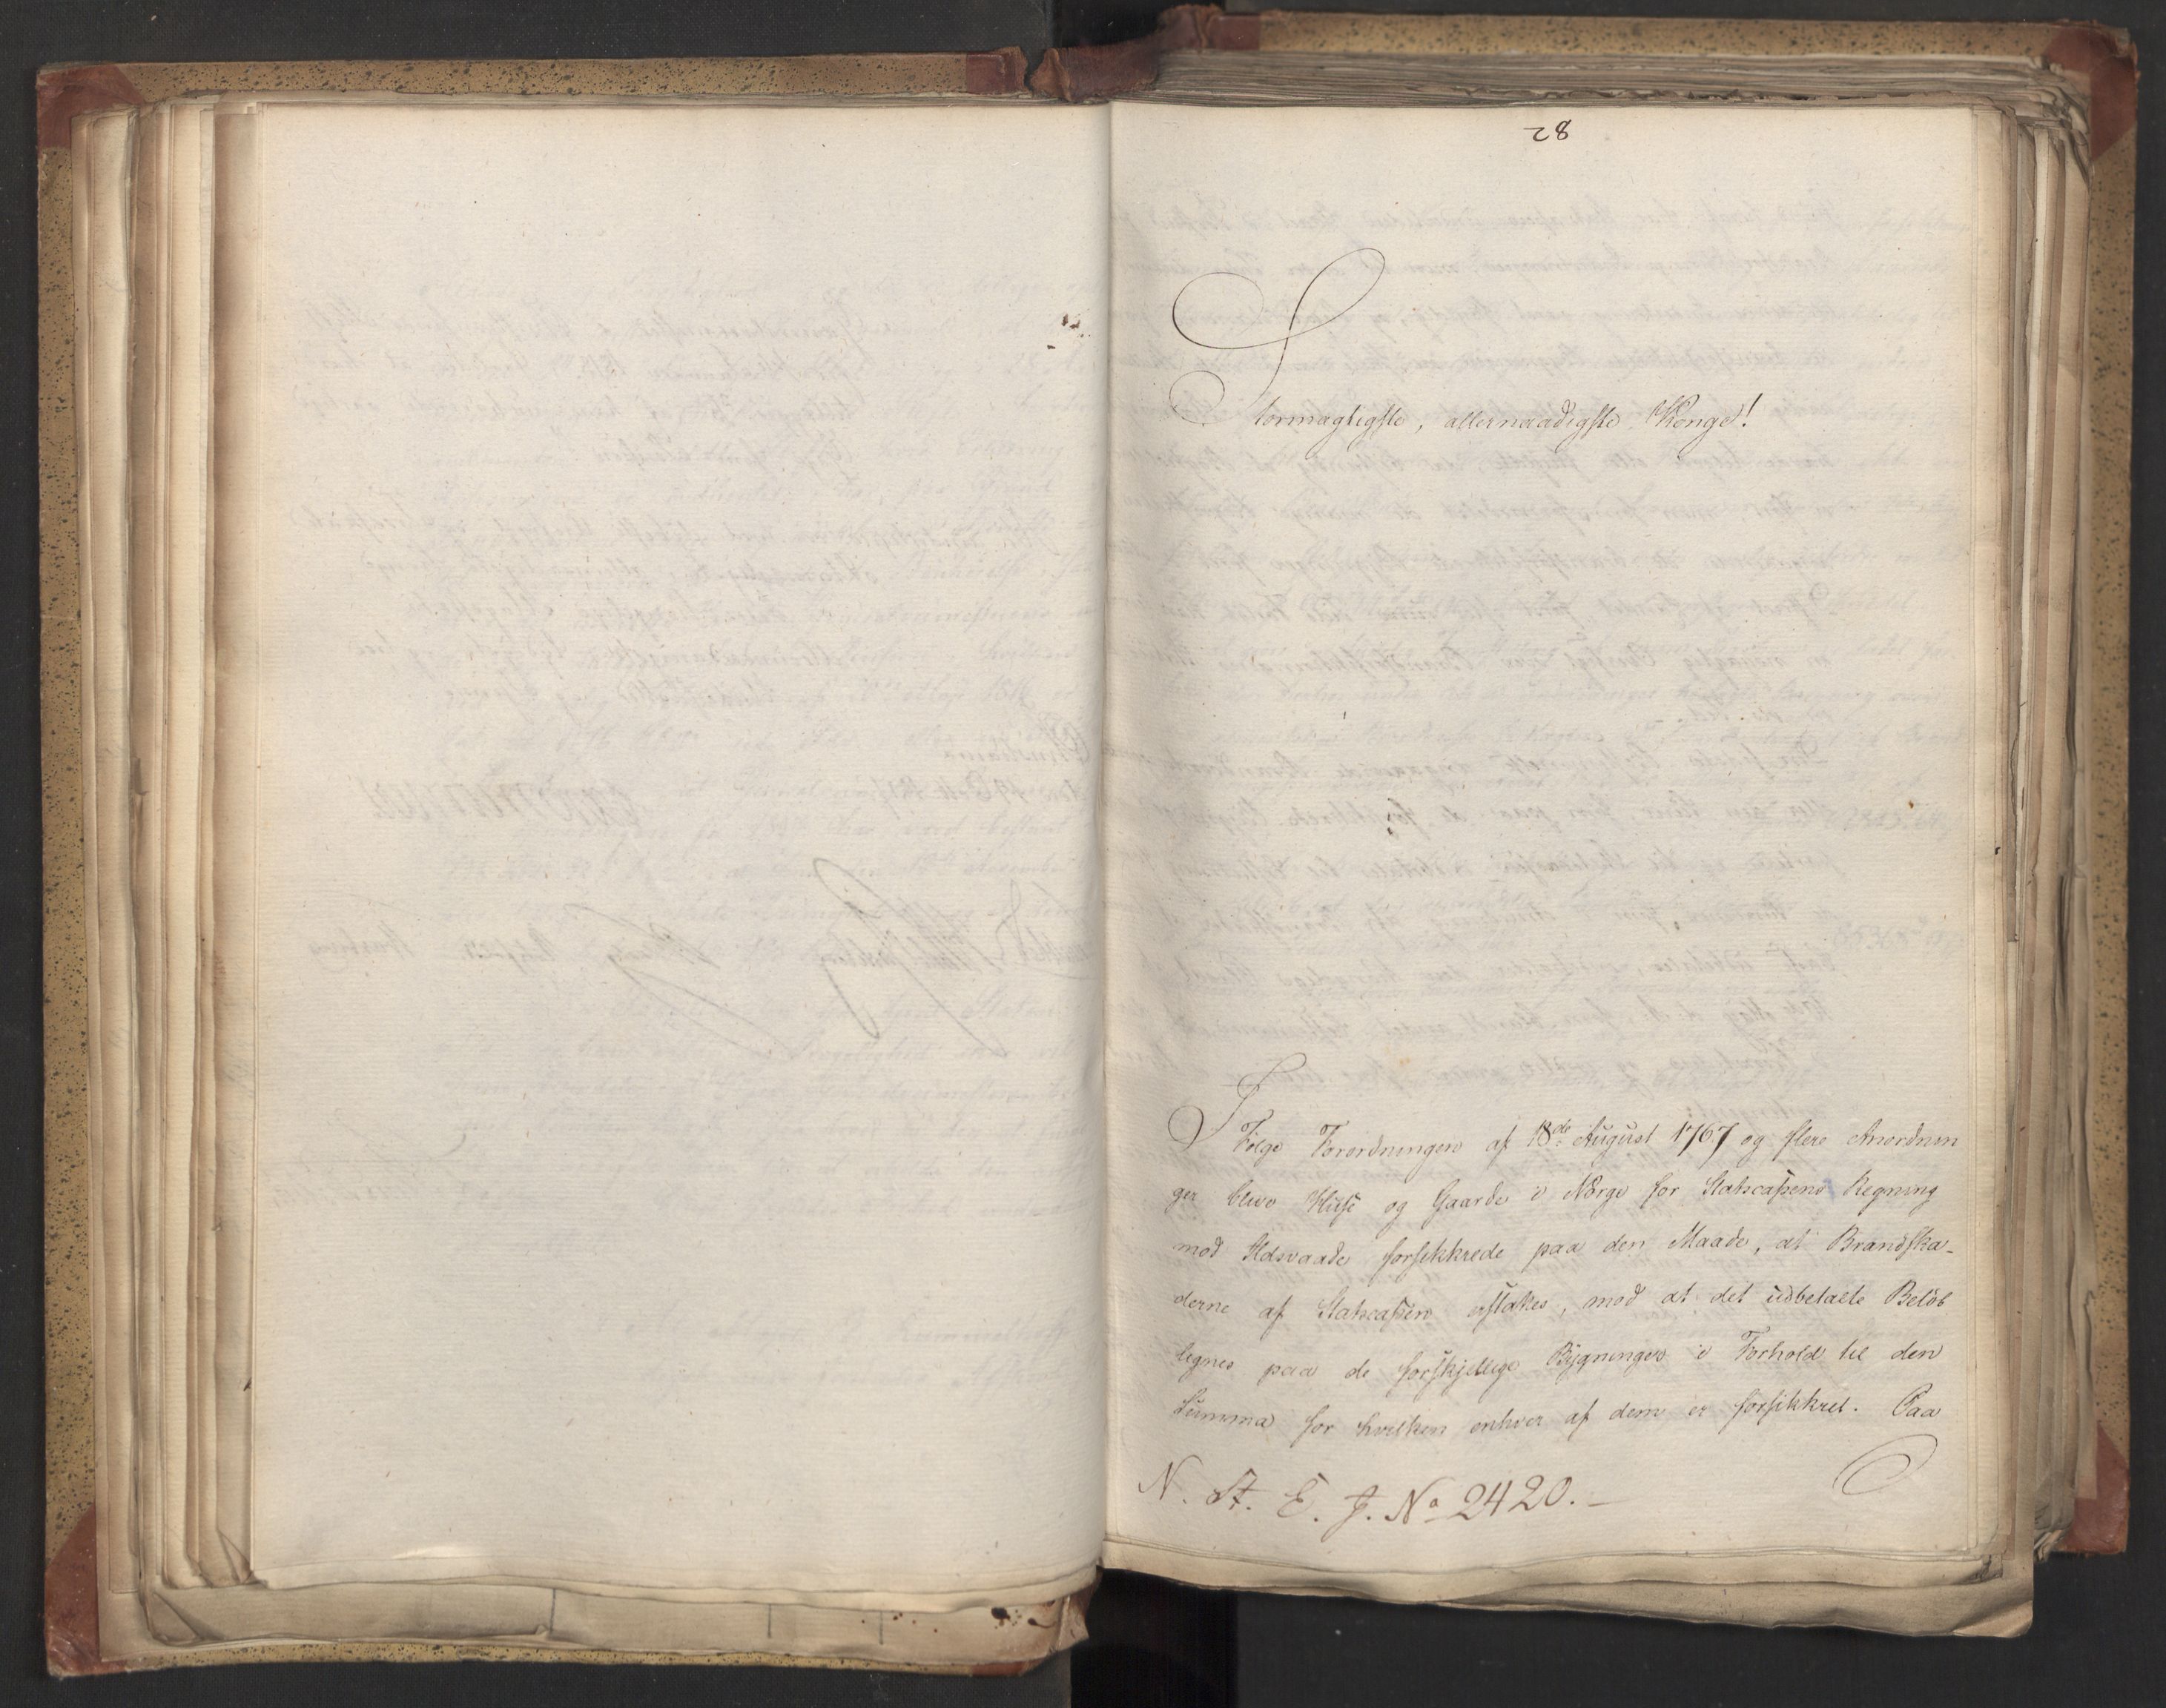 28
Stormægtigste, allernaadigste Konge!
I Følge Forordningen af 18de August 1767 og flere Anordnin
ger bleve Huse og Gaarde i Norge for Statscassens Regning
mod Ildsvaade forsikkrede paa den Maade, at Brandska-
derne af Statscassen erstattes, mod at det udbetalte Beløb
lignes paa de forskjellige Bygninger i Forhold til den
Summa for hvilken enhver af dem er forsikkret. Paa
N. St. E. J. No 2420.-